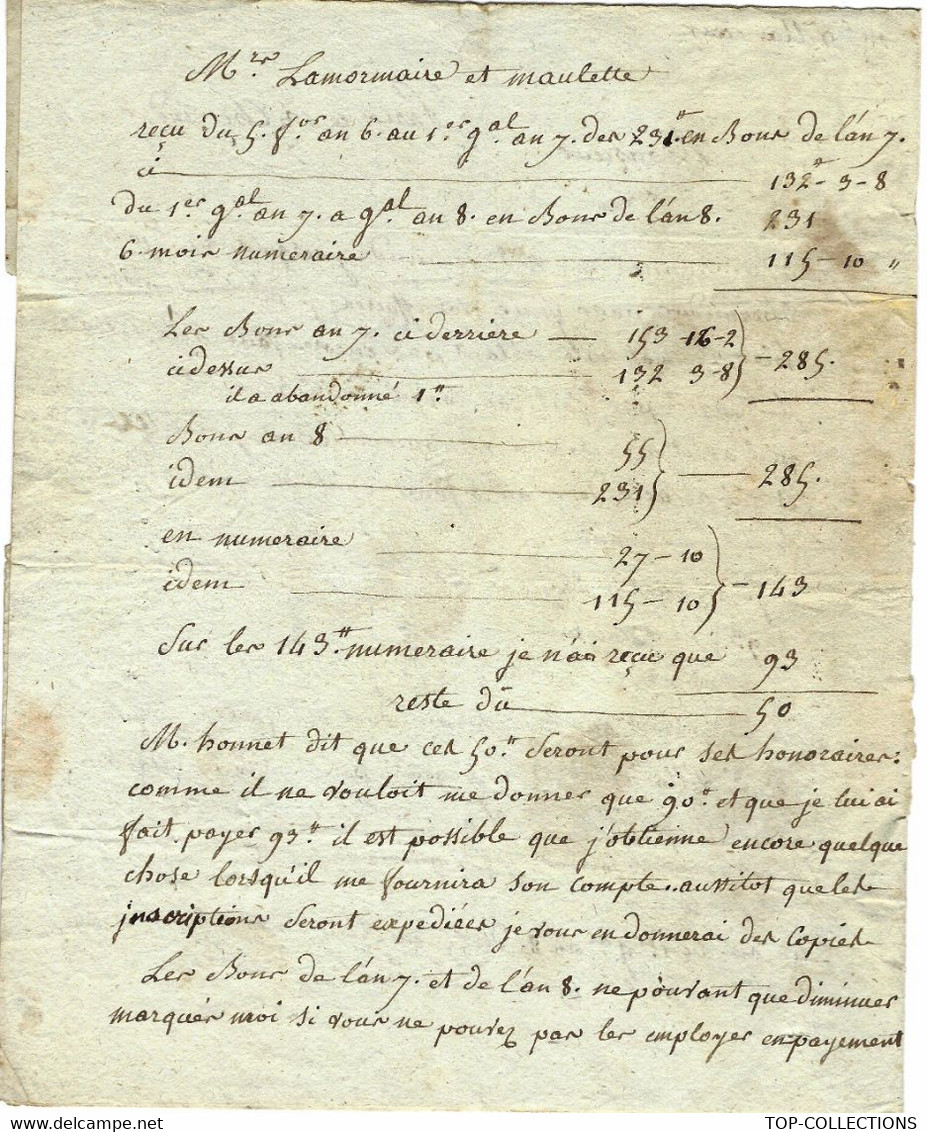 Mrs Lamormaire et maulette
reçu du 5. for an 6. au 1er gal an 7. des 231# en Bons de l'an 7.
ci 132# - 3 - 8
du 1er gal an 7. a gal an 8. en Bons de l'an 8. 231
6. mois numeraire 115 - 10 "
Les Bons an 7. ciderriere 153 - 16 - 2
cidessus 132 3 - 8 } - 285.
il a abandonné 1#
Bons an 8 55
idem 231 } 285.
en numeraire 27 - 10
idem 115 - 10 } - 143
Sur les 143# numeraire je n'ai reçu que 93
reste dû 50
M. honnet dit que ces 50# seront pour ses honoraires:
comme il ne vouloit me donner que 90# et que je lui ai
fait payer 93# il est possible que j'obtienne encore quelque
chose lorsqu'il me fournira son compte.. aussitot que les
inscriptions seront expediées je vous en donnerai des copies
Les Bons de l'an 7. et de l'an 8. ne pouvant que diminuer
marqués moi si vous ne pouvez pas les employer en payement
TOP-COLLECTIONS